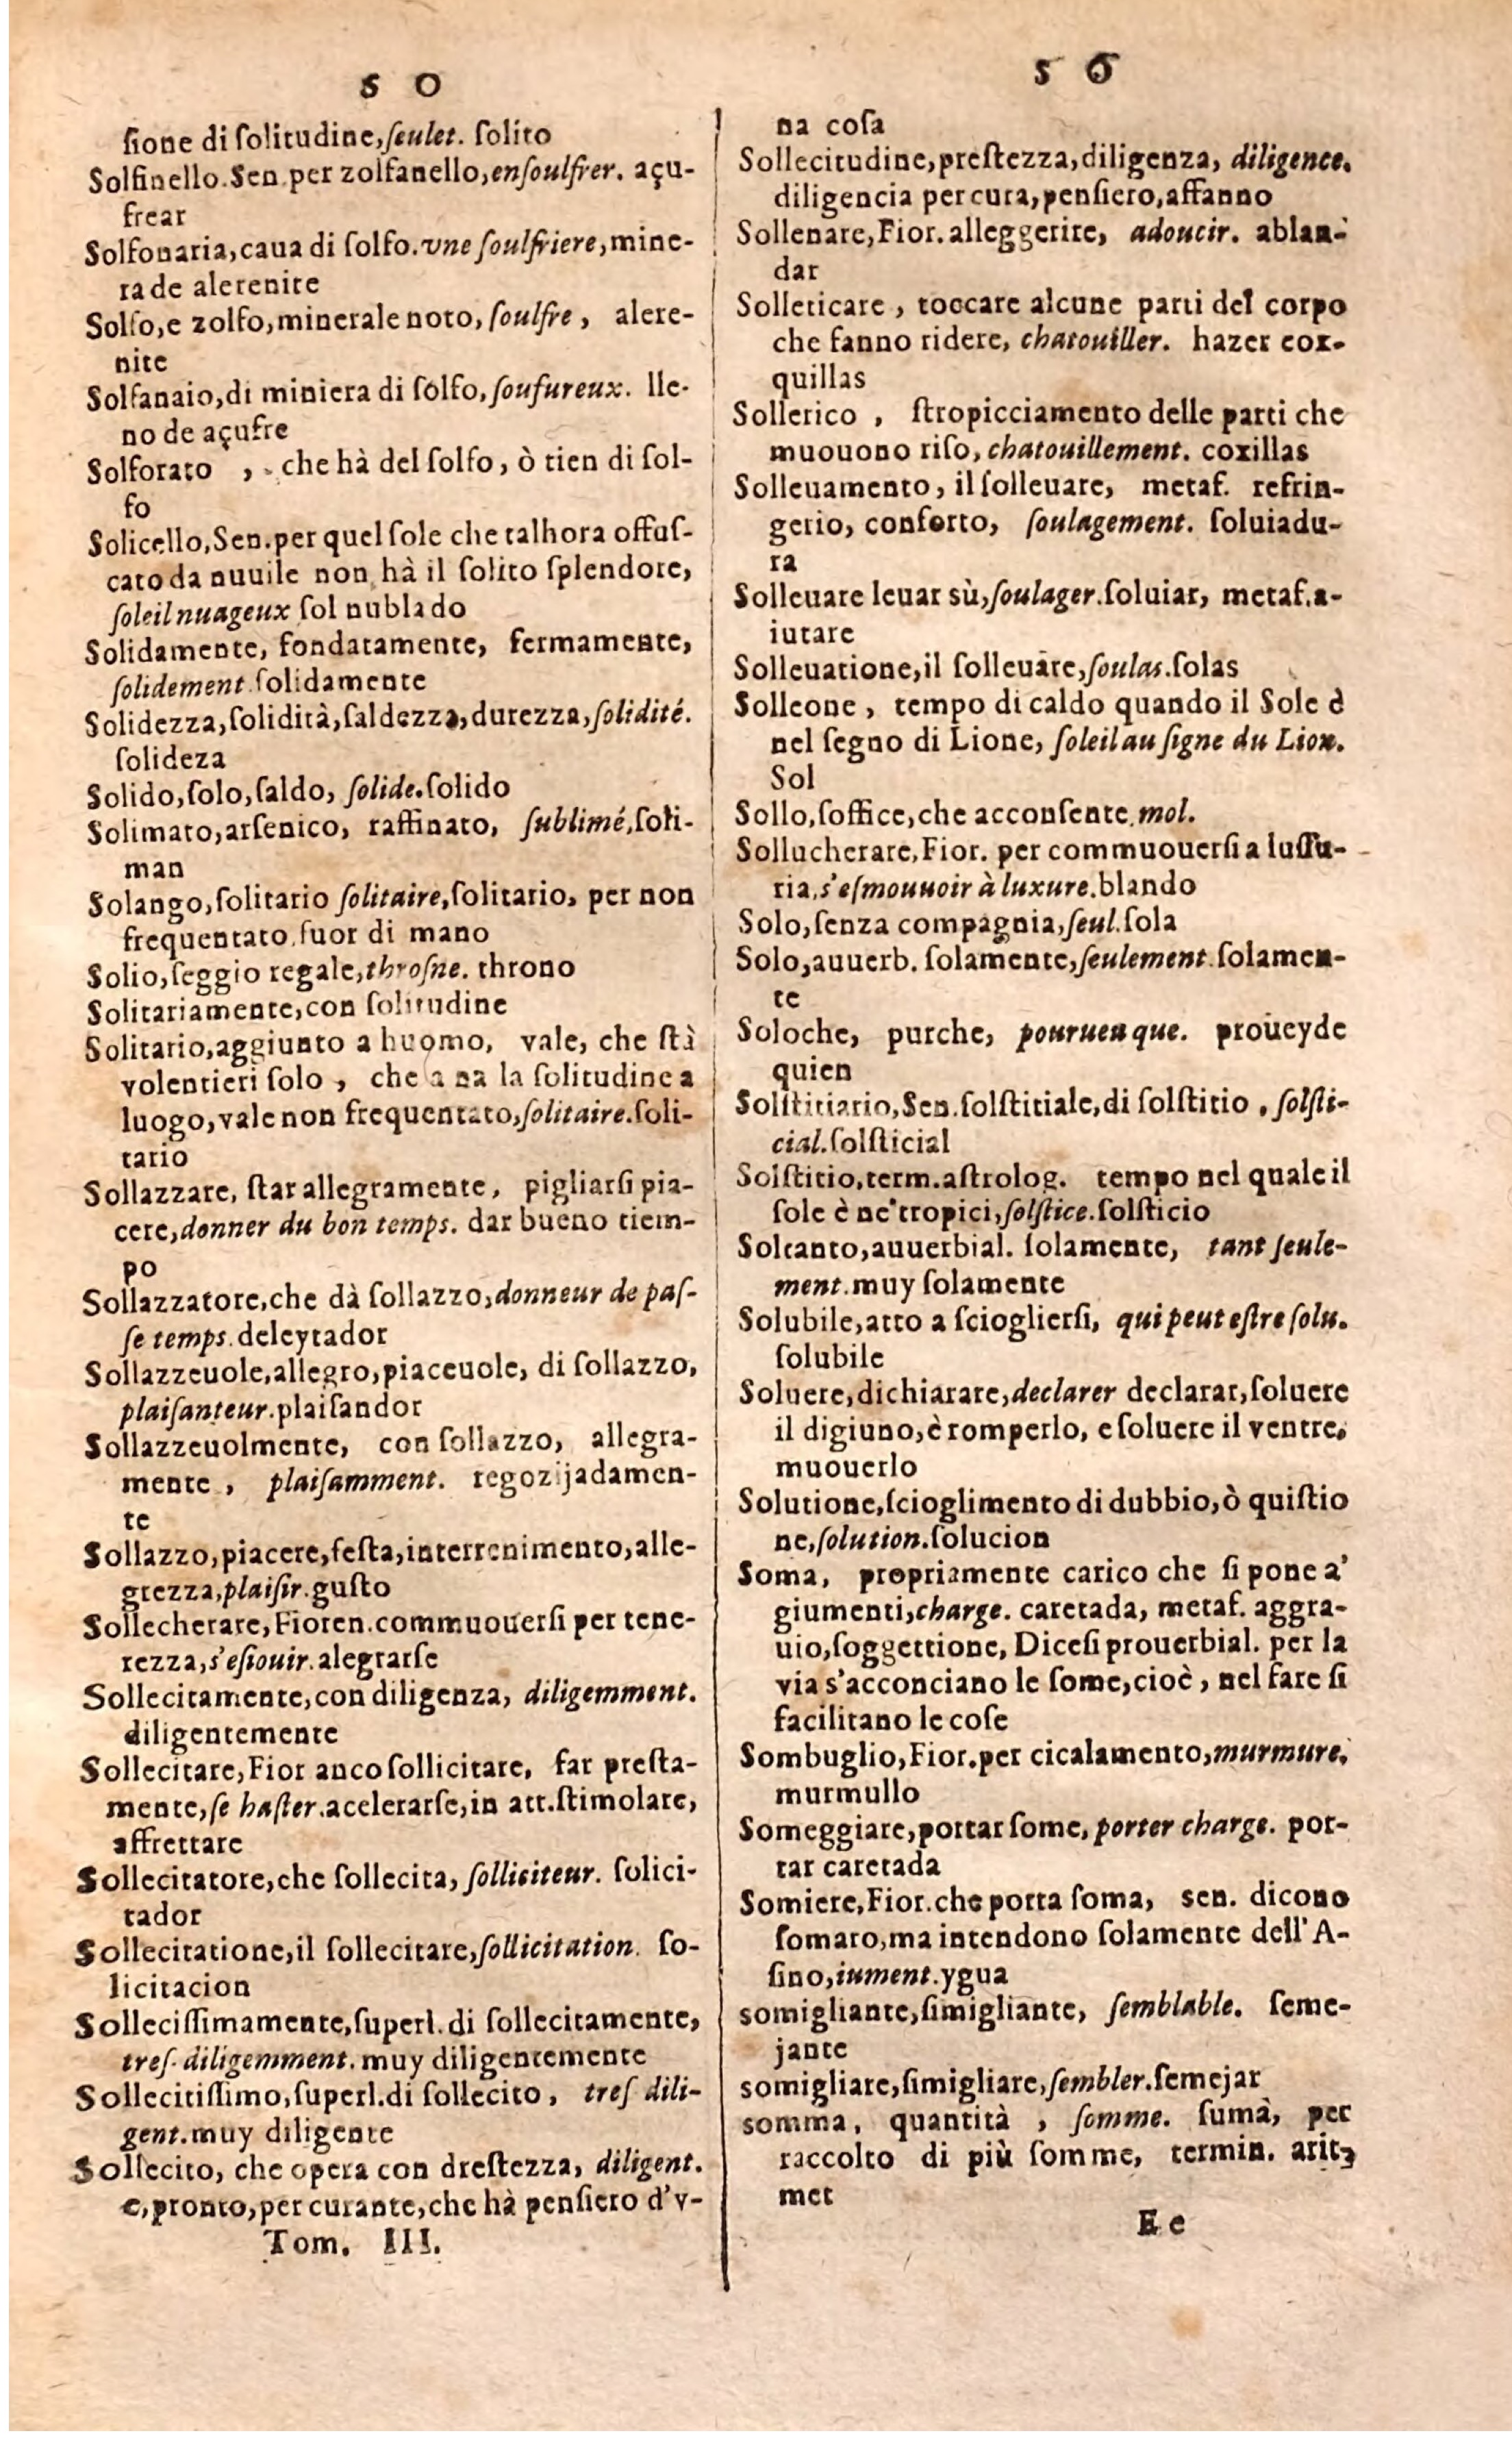 S O
ſione di ſolitudine,ſeulet. ſolito
Solfinello.Sen.per zolfanello,enſoulfrer. açu-
frear
Solfonaria,caua di ſolfo.vne ſoulfriere,mine-
ra de alerenite
Solfo,e zolfo,minerale noto,ſoulfre, alere-
nite
Solfanaio,di miniera di ſolfo,ſoufureux. lle-
no de açufre
Solforato , che hà del ſolfo, ò tien di ſol-
fo
Solicello,Sen.per quel ſole che talhora offuſ-
cato da nuuile non hà il ſolito ſplendore,
ſoleil nuageux ſol nublado
Solidamente, fondatamente, fermamente,
ſolidement ſolidamente
Solidezza,ſolidità,ſaldezza,durezza,ſolidité.
ſolideza
Solido,ſolo,ſaldo, ſolide.ſolido
Solimato,arſenico, raffinato, ſublimé,ſoli-
man
Solango,ſolitario ſolitaire,ſolitario, per non
frequentato,fuor di mano
Solio,ſeggio regale,throſne. throno
Solitariamente,con ſolitudine
Solitario,aggiunto a huomo, vale, che ſtà
volentieri ſolo , che a na la ſolitudine a
luogo,vale non frequentato,ſolitaire.ſoli-
tario
Sollazzare, ſtar allegramente, pigliarſi pia-
cere,donner du bon temps. dar bueno tiem-
po
Sollazzatore,che dà ſollazzo,donneur de paſ-
ſe temps.deleytador
Sollazzeuole,allegro,piaceuole, di ſollazzo,
plaiſanteur.plaiſandor
Sollazzeuolmente, con ſollazzo, allegra-
mente , plaiſamment. regozijadamen-
te
Sollazzo,piacere,feſta,interrenimento,alle-
grezza,plaiſir.guſto
Sollecherare,Fioren.commuouerſi per tene-
rezza,s'eſiouir.alegrarſe
Sollecitamente,con diligenza, diligemment.
diligentemente
Sollecitare,Fior anco ſollicitare, far preſta-
mente,ſe haſter.acelerarſe,in att.ſtimolare,
affrettare
Sollecitatore,che ſollecita, ſolliciteur. ſolici-
tador
Sollecitatione,il ſollecitare,ſollicitation. ſo-
licitacion
Solleciſſimamente,ſuperl.di ſollecitamente,
treſ diligemment.muy diligentemente
Sollecitiſſimo,ſuperl.di ſollecito, treſ dili-
gent.muy diligente
Sollecito, che opera con dreſtezza, diligent.
e,pronto,per curante,che hà penſiero d'v-
Tom. III.
S O
na coſa
Sollecitudine,preſtezza,diligenza, diligence.
diligencia per cura,penſiero,affanno
Sollenare,Fior.alleggerire, adoucir. ablan-
dar
Solleticare , toccare alcune parti del corpo
che fanno ridere, chatouiller. hazer cox-
quillas
Sollerico , ſtropicciamento delle parti che
muouono riſo,chatouillement. coxillas
Solleuamento, il ſolleuare, metaf. refrin-
gerio, conforto, ſoulagement. ſoluiadu-
ra
Solleuare leuar sù,ſoulager.ſoluiar, metaf.a-
iutare
Solleuatione,il ſolleuare,ſoulas.ſolas
Solleone , tempo di caldo quando il Sole è
nel ſegno di Lione, ſoleil au ſigne du Lion.
Sol
Sollo,ſoffice,che acconſente,mol.
Sollucherare,Fior. per commuouerſi a luſſu-
ria,s'eſmouuoir à luxure.blando
Solo,ſenza compagnia,ſeul.ſola
Solo,auuerb. ſolamente,ſeulement.ſolamen-
te
Soloche, purche, pourueu que. proueyde
quien
Solſtitiario,Sen.ſolſtitiale,di ſolſtitio , ſolſti-
cial.ſolſticial
Solſtitio,term.aſtrolog. tempo nel quale il
ſole è ne' tropici,ſolſtice.ſolſticio
Soltanto,auuerbial. ſolamente, tant ſeule-
ment.muy ſolamente
Solubile,atto a ſciogliersi, qui peut eſtre ſolu.
ſolubile
Soluere,dichiarare,declarer declarar,ſoluere
il digiuno,è romperlo, e ſoluere il ventre,
muouerlo
Solutione,ſcioglimento di dubbio,ò quiſtio
ne,ſolution.ſolucion
Soma, propriamente carico che ſi pone a'
giumenti,charge. caretada, metaf. aggra-
uio,ſoggettione, Diceſi prouerbial. per la
via s'acconciano le ſome,cioè, nel fare ſi
facilitano le coſe
Sombuglio,Fior.per cicalamento,murmure,
murmullo
Someggiare,portar ſome,porter charge. por-
tar caretada
Somiere,Fior.che porta ſoma, sen. dicono
ſomaro,ma intendono ſolamente dell'A-
ſino,iument.ygua
somigliante,ſimigliante, ſemblable. ſeme-
jante
somigliare,ſimigliare,ſembler.ſemejar
somma, quantità , ſomme. ſumà, per
raccolto di più ſomme, termin. arit-
met
Ee